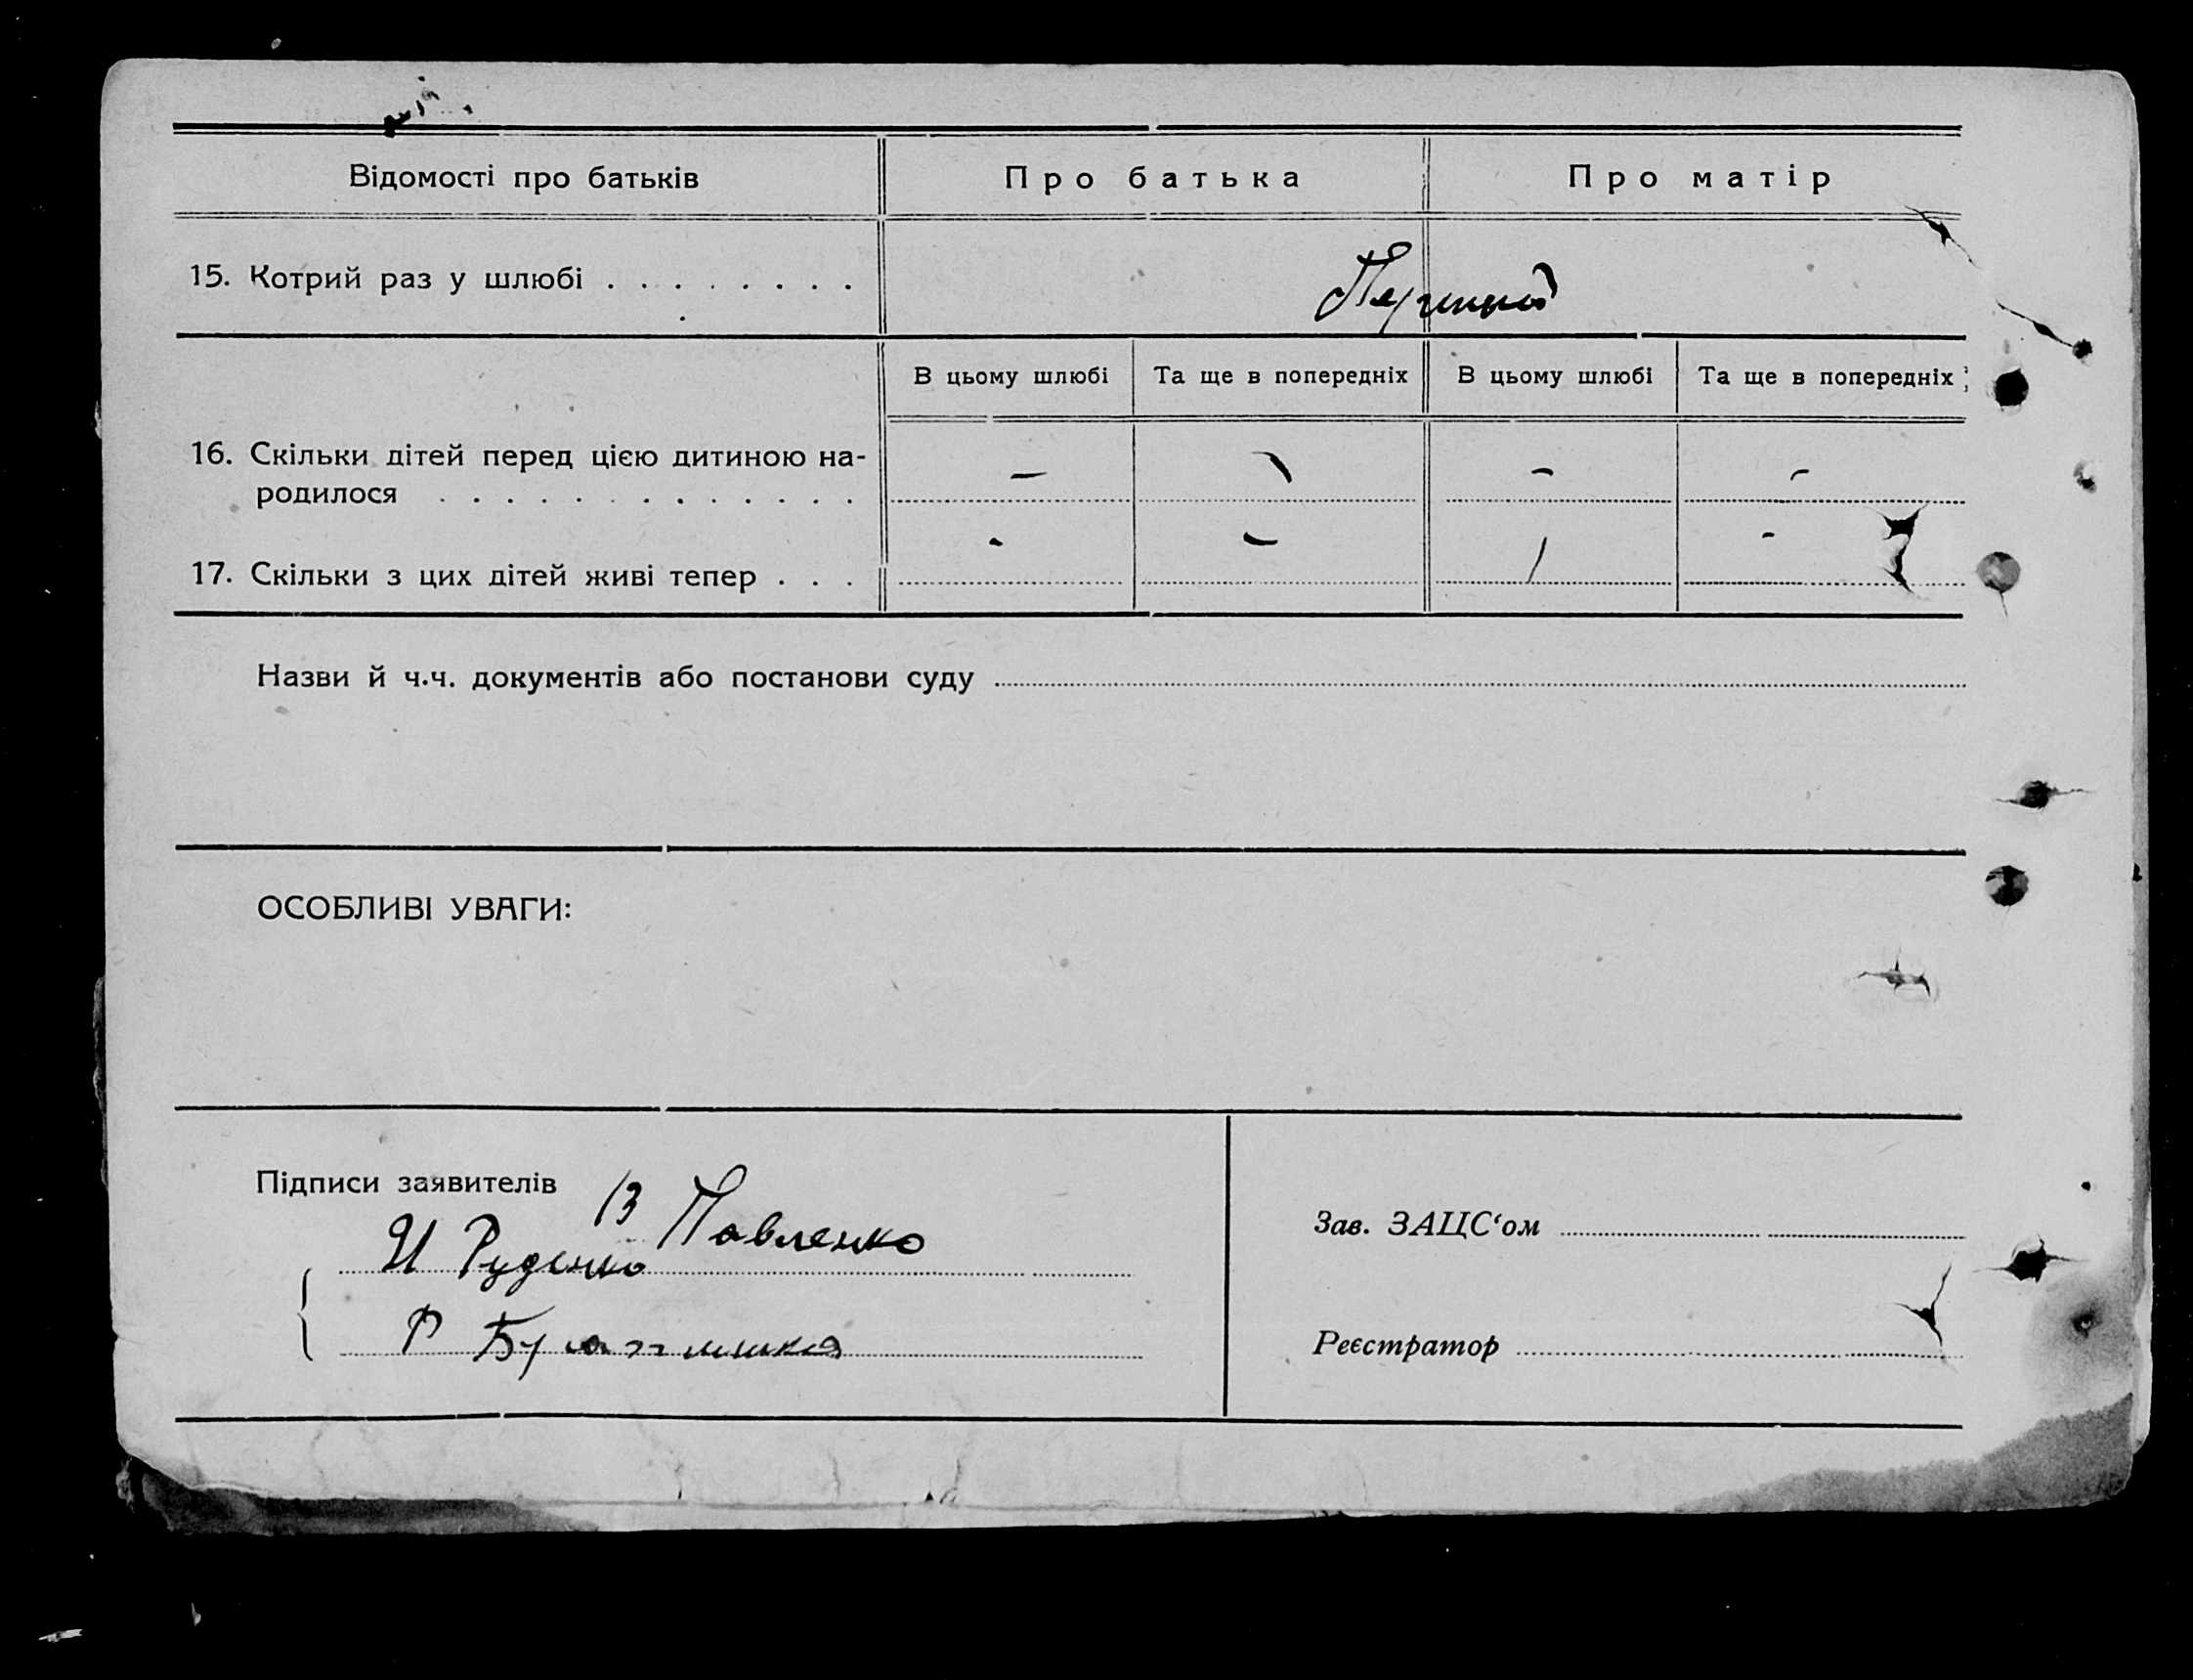 Відомості про батьків Про батька Про матір
15. Котрий раз у шлюбі . . . . . . . .
В цьому шлюбі Та ще в попередніх В цьому шлюбі Та ще в попередніх
16. Скільки дітей перед цією дитиною на-
родилося . . . . . . . . . . . . . — - - -
17. Скільки з цих дітей живі тепер . . . - - / -
Назви й ч.ч. документів або постанови суду
ОСОБЛИВІ УВАГИ:
Підписи заявителів
В Павленко
И Руденко
Р
Зав. ЗАЦС‘ом
Реєстратор